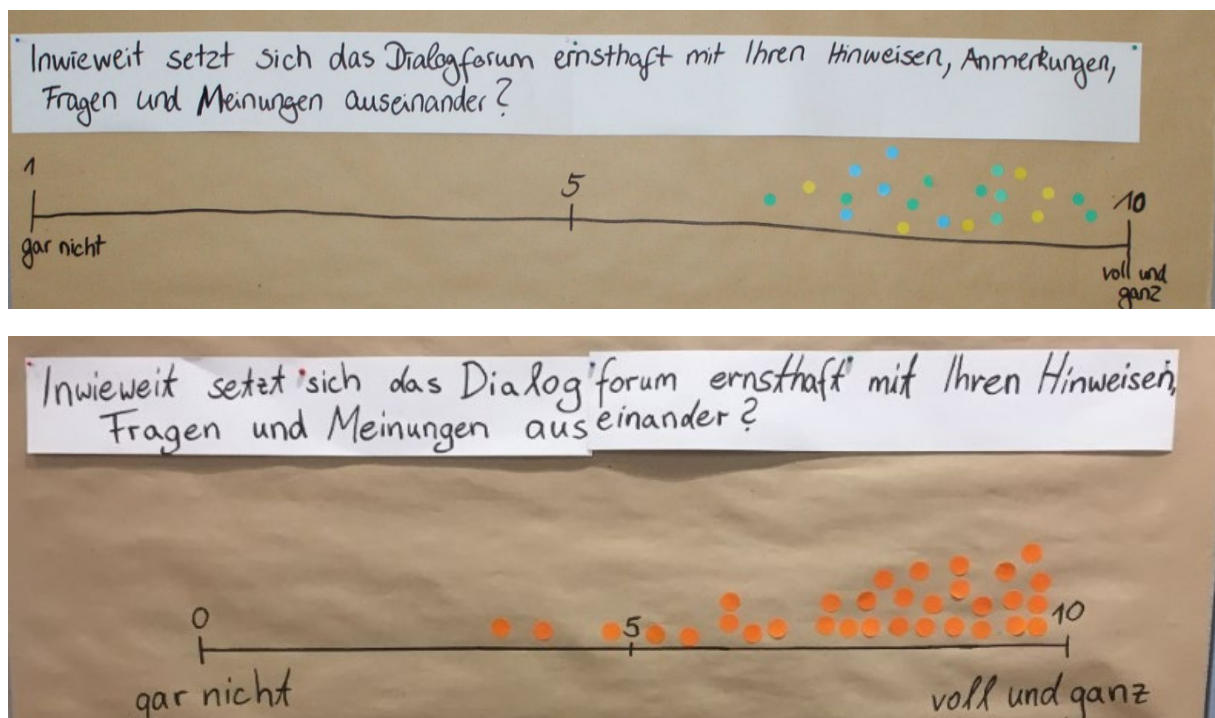 Inwieweit setzt sich das Dialogforum ernsthaft mit Ihren Hinweisen, Anmerkungen,
Fragen und Meinungen auseinander?
1
5
10
gar nicht
voll und
ganz
Inwieweit setzt sich das Dialogforum ernsthaft mit Ihren Hinweisen,
Fragen und Meinungen auseinander?
0
5
10
gar nicht
voll und ganz